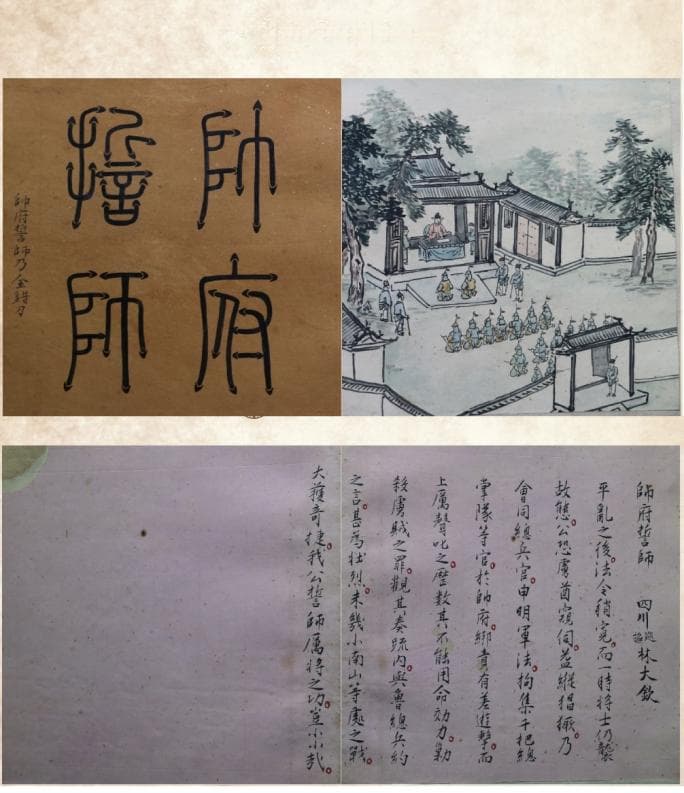 帥府
誓師
帥府誓師乃金錯刀
帥府誓師 四川 林大欽
平亂之後法令稍寬而一時將士仍襲
故態公恐虜酋窺伺益縱猖獗乃
會同總兵官申明軍法拘集千把總
掌隊等官於帥府綁責有差進擊而
上厲聲叱之歷數其不能用命効力勦
殺虜賊之罪觀其奏疏內與魯總兵約
之言甚為壯烈未幾小南山等處之戰
大獲奇捷我公誓師厲將之功豈小小哉